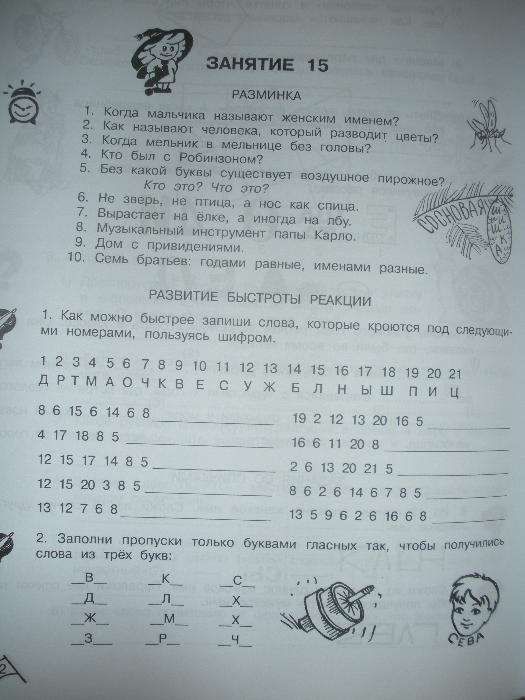 ЗАНЯТИЕ 15
РАЗМИНКА
1. Когда мальчика называют женским именем?
2. Как называют человека, который разводит цветы?
3. Когда мельник в мельнице без головы?
4. Кто был с Робинзоном?
5. Без какой буквы существует воздушное пирожное?
Кто это? Что это?
6. Не зверь, не птица, а нос как спица.
7. Вырастает на ёлке, а иногда на лбу.
8. Музыкальный инструмент папы Карло.
9. Дом с привидениями.
10. Семь братьев: годами равные, именами разные.
СОСНОВАЯ
ШИШКА
РАЗВИТИЕ БЫСТРОТЫ РЕАКЦИИ
1. Как можно быстрее запиши слова, которые кроются под следующи-
ми номерами, пользуясь шифром.
1 2 3 4 5 6 7 8 9 10 11 12 13 14 15 16 17 18 19 20 21
Д Р Т М А О Ч К В Е С У Ж Б Л Н Ы Ш П И Ц
8 6 15 6 14 6 8 19 2 12 13 20 16 5
4 17 18 8 5 16 6 11 20 8
12 15 17 14 8 5 2 6 13 20 21 5
12 15 20 3 8 5 8 6 2 6 14 6 7 8 5
13 12 7 6 8 13 5 9 6 2 6 16 6 8
2. Заполни пропуски только буквами гласных так, чтобы получились
слова из трёх букв:
__В__ __К__ __С__
__Д__ __Л__ __Х__
__Ж__ __М__ __Х__
__З__ __Р__ __Ч__
СЕВА